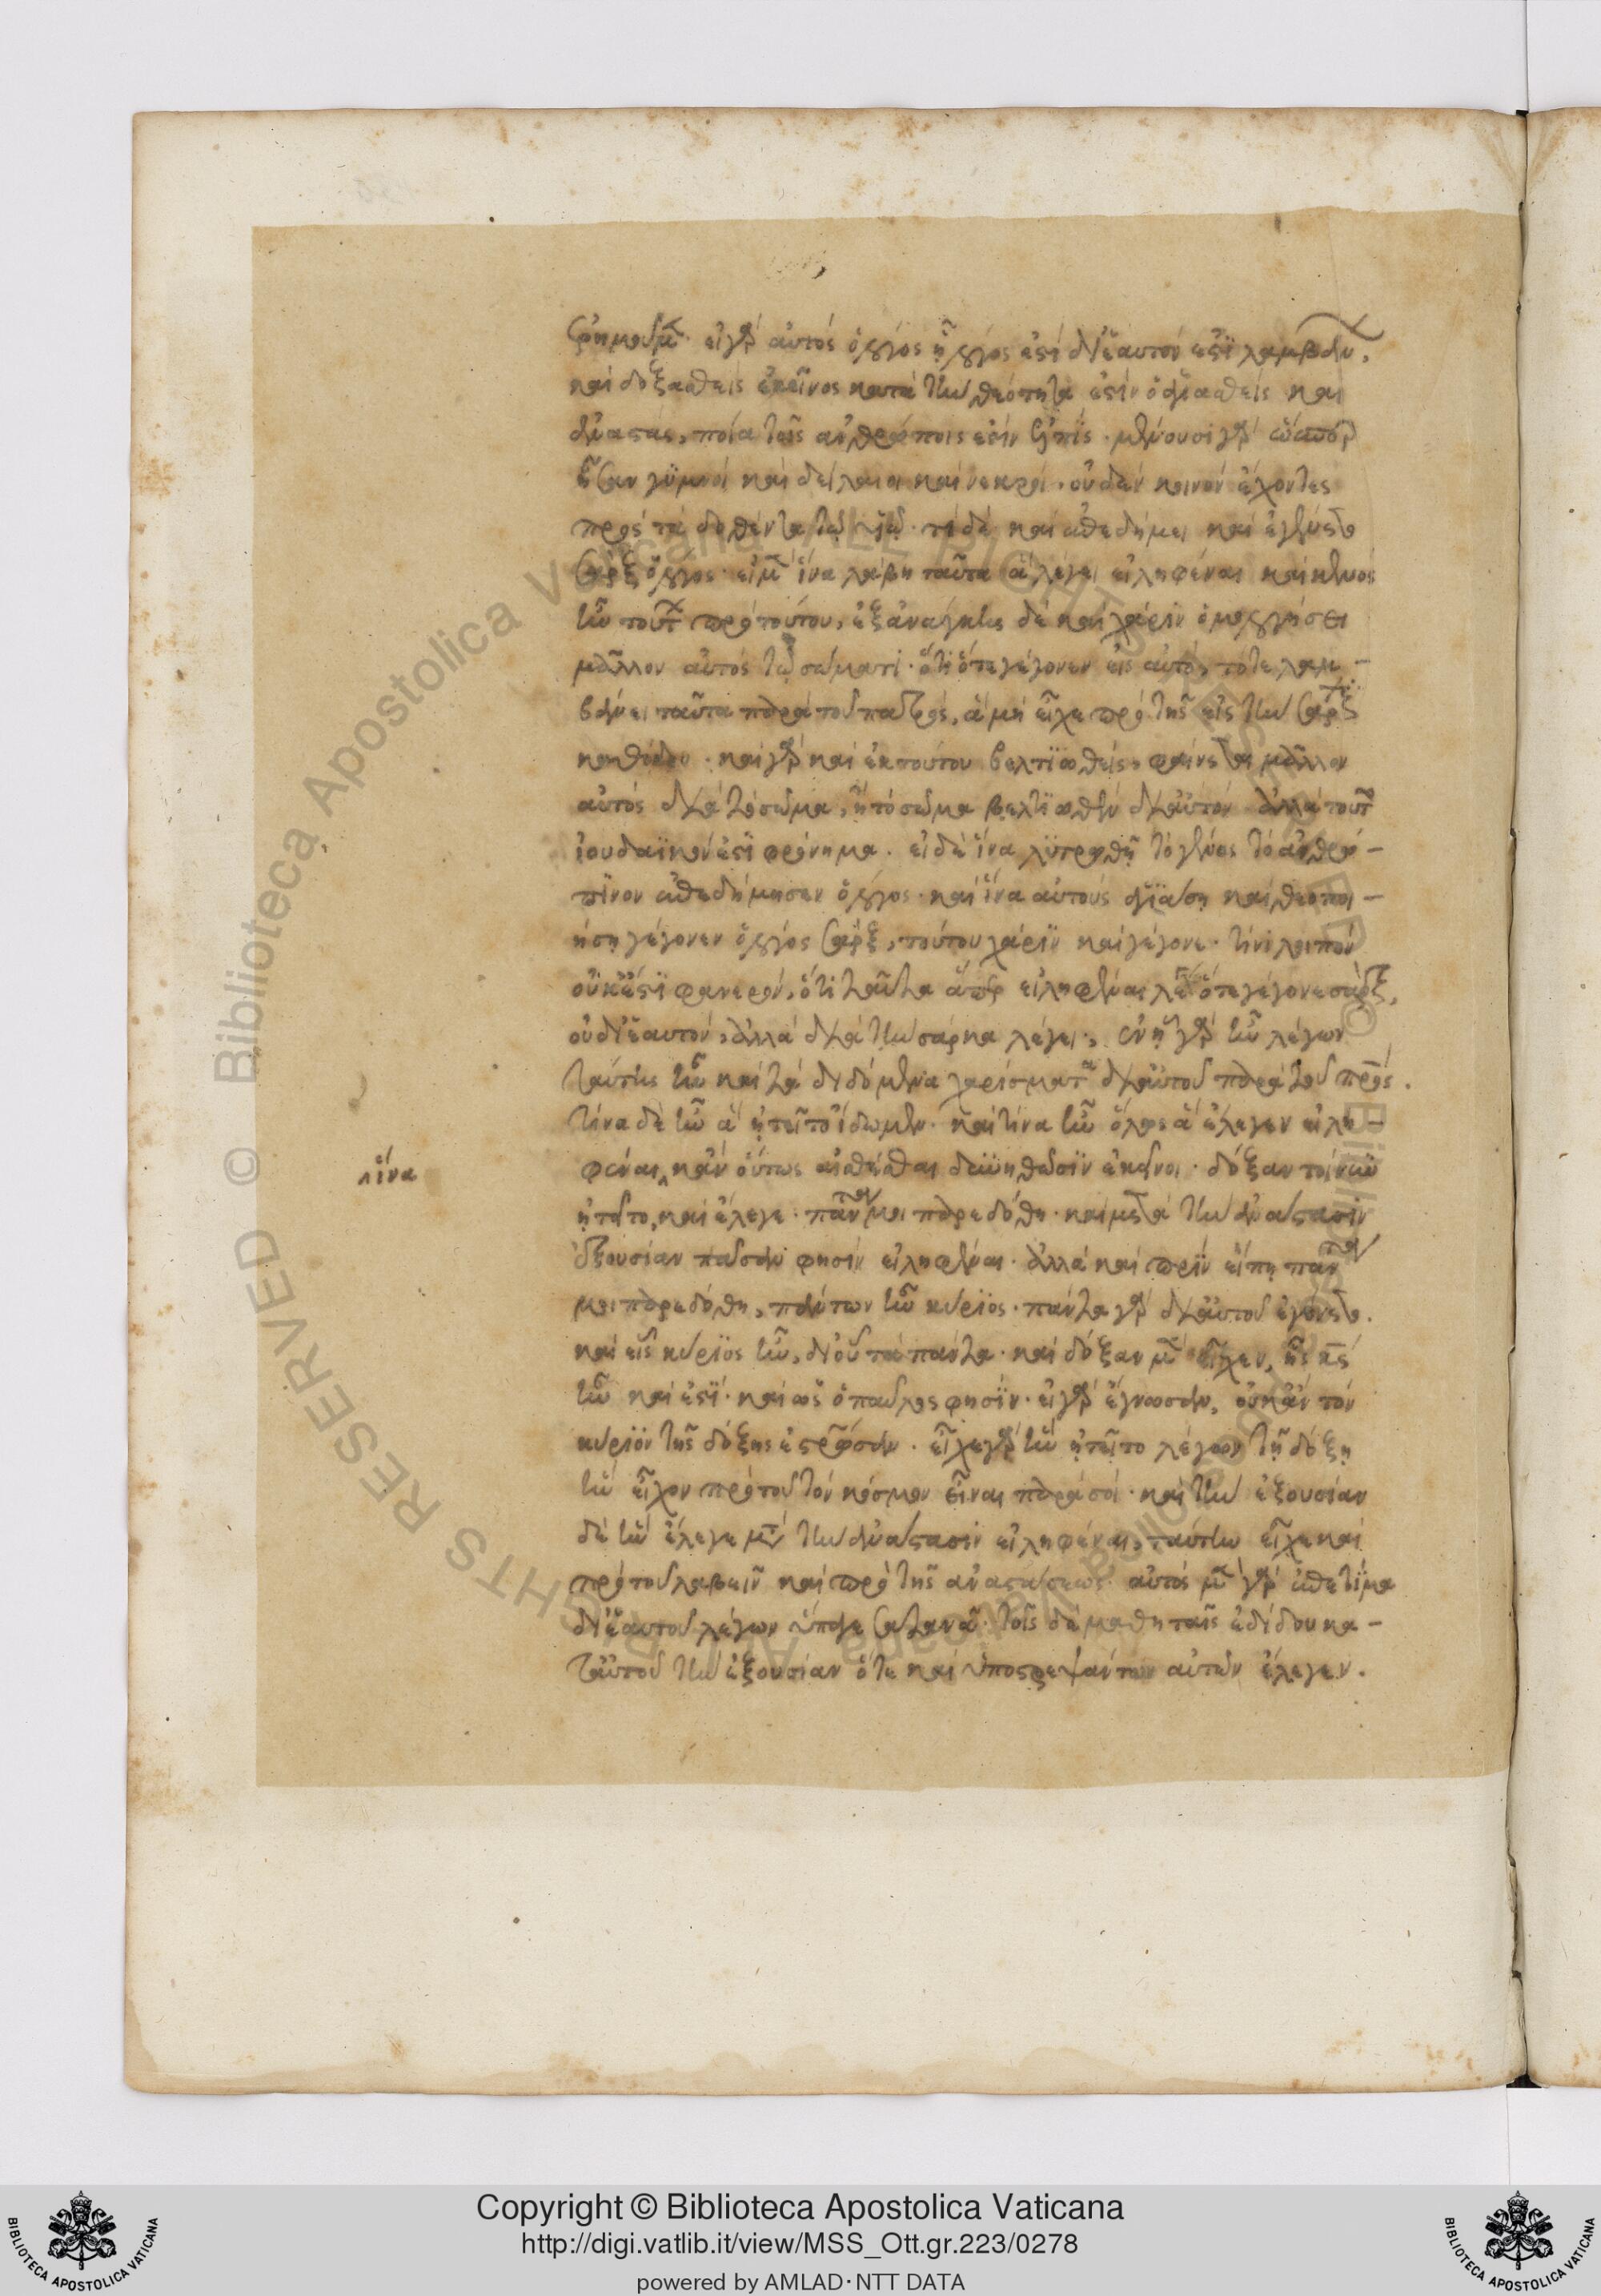 εἰ γὰρ αὐτὸς ὁ λόγος ᾗ λόγος ἐστὶ δι' ἑαυτόν ἐστι λαμβάνων,
καὶ δοξασθεὶς ἐκεῖνος κατὰ τὴν θεότητα ἐστὶν ὁ ἁγιασθεὶς καὶ
ἀναστάς, ποία τοῖς ἀνθρώποις ἐστὶν ἐλπίς· μένουσι γὰρ ὥσπερ
ἦσαν γυμνοὶ καὶ δείλαιοι καὶ νεκροί, οὐδὲν κοινὸν ἔχοντες
πρὸς τὰ δοθέντα τῷ υἱῷ· τί δὲ καὶ ἐπεδήμει καὶ ἐγένετο
σὰρξ ὁ λόγος· εἰ μὲν ἵνα λάβῃ ταῦτα ἃ λέγει εἰληφέναι καὶ κενὸς
ἦν τούτων πρὸ τούτου, ἐξανάγκης δὲ καὶ χάριν ὁμολογήσει
μᾶλλον αὐτὸς τῷ σώματι· ὅτι ὅτε γέγονεν εἰς αὐτό, τότε λαμ-
βάνει ταῦτα παρὰ τοῦ πατρός, ἃ μὴ εἶχε πρὸ τῆς εἰς τὴν σάρκα
καθόδου· καὶ γὰρ καὶ ἐκ τούτου βελτιωθεὶς φαίνεται μᾶλλον
αὐτὸς διὰ τὸ σῶμα, ἢ τὸ σῶμα βελτιωθὲν δι' αὐτόν· ἀλλὰ τοῦτο
ἰουδαϊκόν ἐστι φρόνημα. εἰ δὲ ἵνα λυτρωθῇ τὸ γένος τὸ ἀνθρώ-
πινον ἐπεδήμησεν ὁ λόγος· καὶ ἵνα αὐτοὺς ἁγιάσῃ καὶ θεοποι-
ήσῃ γέγονεν ὁ λόγος σάρξ, τούτου χάριν καὶ γέγονε· τίνι λοιπὸν
οὐκ ἔστι φανερόν, ὅτι ταῦτα ἅπερ εἰληφέναι λέγει ὅτε γέγονε σάρξ,
οὐ δι' ἑαυτόν, ἀλλὰ διὰ τὴν σάρκα λέγει· ἐν ᾗ γὰρ ἦν λέγων
ταύτης ἦν καὶ τὰ διδόμενα χαρίσματα δι' αὐτοῦ παρὰ τοῦ πρς.
τίνα δὲ ἦν ἃ ᾐτεῖτο ἴδωμεν· καὶ τίνα ἦν ὅλως ἃ ἔλεγεν εἰλη-
φέναι, κἂν οὕτως αἰσθέσθαι δυνηθῶσιν ἐκεῖνοι· δόξαν τοίνυν
ᾐτεῖτο, καὶ ἔλεγε· πάντα μοι παρεδόθη· καὶ μετὰ τὴν ἀνάστασιν
ἐξουσίαν πᾶσαν φησὶν εἰληφέναι· ἀλλὰ καὶ πρὶν εἴπῃ πάντα
μοι παρεδόθη, πάντων ἦν κύριος· πάντα γὰρ δι' αὐτοῦ ἐγένετο.
καὶ εἷς κύριος ἦν, δι' οὗ τὰ πάντα· καὶ δόξαν εἶχεν, τῆς δόξης κς
ἦν καὶ ἔστι· καὶ ὡς ὁ παῦλος φησίν· εἰ γὰρ ἔγνωσαν, οὐκ ἂν τὸν
κύριον τῆς δόξης ἐσταύρωσαν. εἶχε γὰρ ἣν ᾐτεῖτο λέγων τῇ δόξῃ
ᾗ εἶχον πρὸ τοῦ τὸν κόσμον εἶναι παρὰ σοί· καὶ τὴν ἐξουσίαν
δὲ ἣν ἔλεγε μετὰ τὴν ἀνάστασιν εἰληφέναι, ταύτην εἶχε καὶ
πρὸ τοῦ λαβεῖν καὶ πρὸ τῆς ἀναστάσεως· αὐτὸς μὲν γὰρ ἐπετίμα
δι' ἑαυτοῦ λέγων ὕπαγε σατανᾶ· τοῖς δὲ μαθηταῖς ἐδίδου κα-
τ' αὐτοῦ τὴν ἐξουσίαν ὅτε καὶ ὑποστρεψάντων αὐτῶν ἔλεγεν.
ἵνα
© Biblioteca Apostolica Vaticana ALL RIGHTS RESERVED
Copyright © Biblioteca Apostolica Vaticana
http://digi.vatlib.it/view/MSS_Ott.gr.223/0278
powered by AMLAD·NTT DATA
BIBLIOTECA APOSTOLICA VATICANA
BIBLIOTECA APOSTOLICA VATICANA